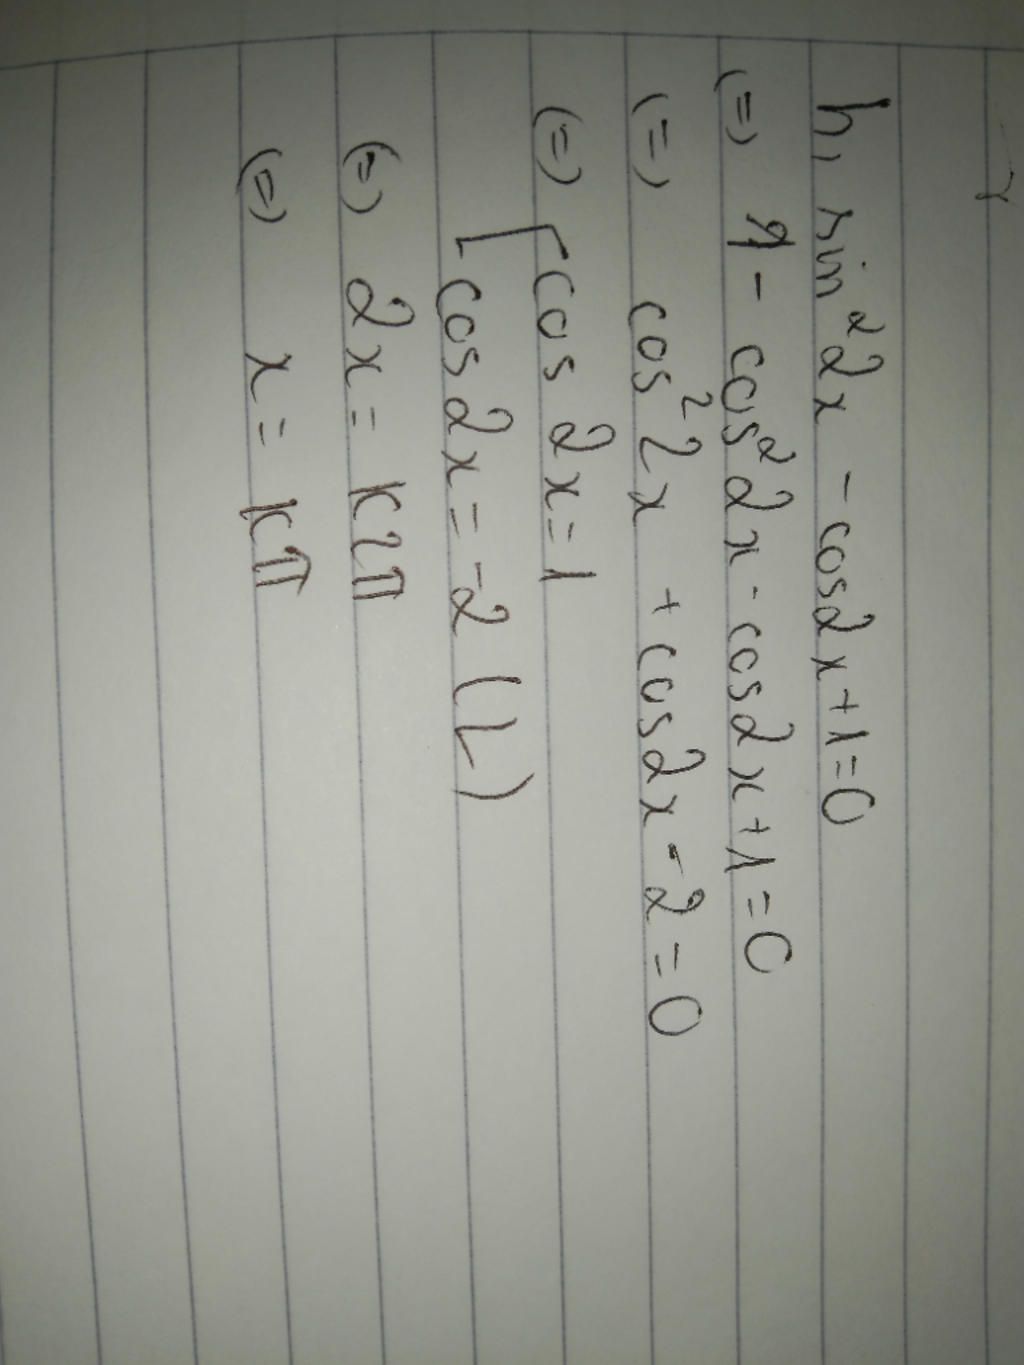 h, sin²2x - cos2x+1=0
(=) 1 - cos²2x - cos2x+1=0
(=) cos²2x + cos2x - 2 = 0
(=) [cos 2x = 1
[cos 2x = -2 (L)
(=) 2x = k2π
(=) x = kπ